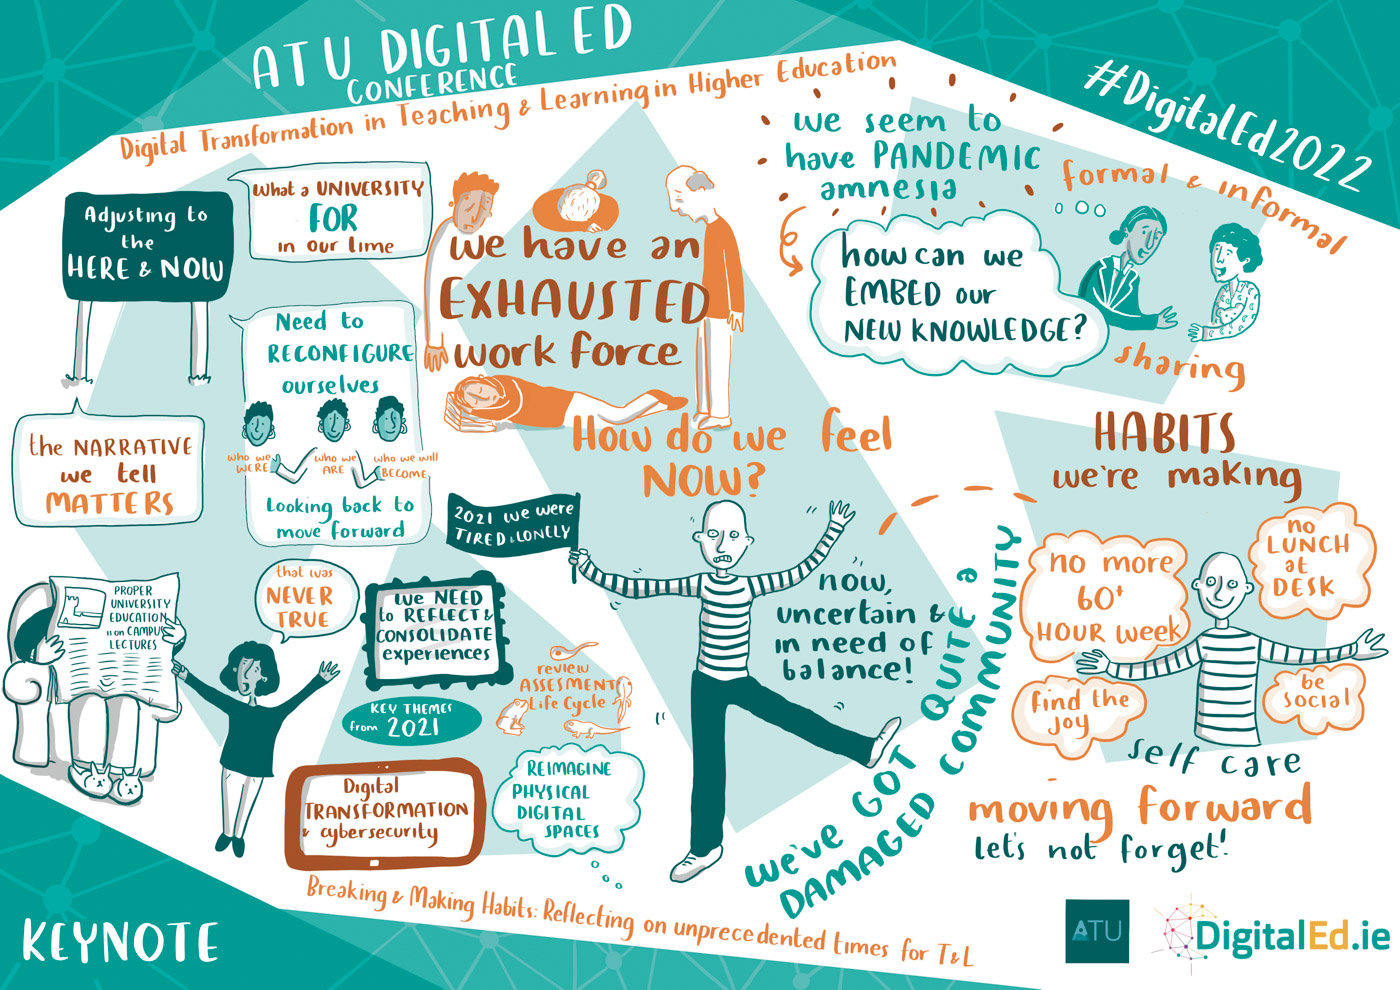 ATU DIGITAL ED
CONFERENCE
Digital Transformation in Teaching & Learning in Higher Education
#DigitalEd2022
Adjusting to
the
HERE & NOW
What a UNIVERSITY
FOR
in our time
the NARRATIVE
we tell
MATTERS
Need to
RECONFIGURE
ourselves
who we
WERE
who we
ARE
who we will
BECOME
Looking back to
move forward
we have an
EXHAUSTED
work force
How do we feel
NOW?
we seem to
have PANDEMIC
amnesia
how can we
EMBED our
NEW KNOWLEDGE?
formal & informal
sharing
PROPER
UNIVERSITY
EDUCATION
is on CAMPUS
LECTURES
that was
NEVER
TRUE
we NEED
to REFLECT &
CONSOLIDATE
experiences
KEY THEMES
from 2021
review
ASSESMENT
Life Cycle
Digital
TRANSFORMATION
& cybersecurity
REIMAGINE
PHYSICAL
DIGITAL
SPACES
2021 we were
TIRED & LONELY
now,
uncertain &
in need of
balance!
we've GOT QUITE a
DAMAGED COMMUNITY
HABITS
we're making
no more
60+
HOUR week
no
LUNCH
at
DESK
find the
joy
be
social
self care
moving forward
let's not forget!
Breaking & Making Habits: Reflecting on unprecedented times for T&L
KEYNOTE
ATU
DigitalEd.ie